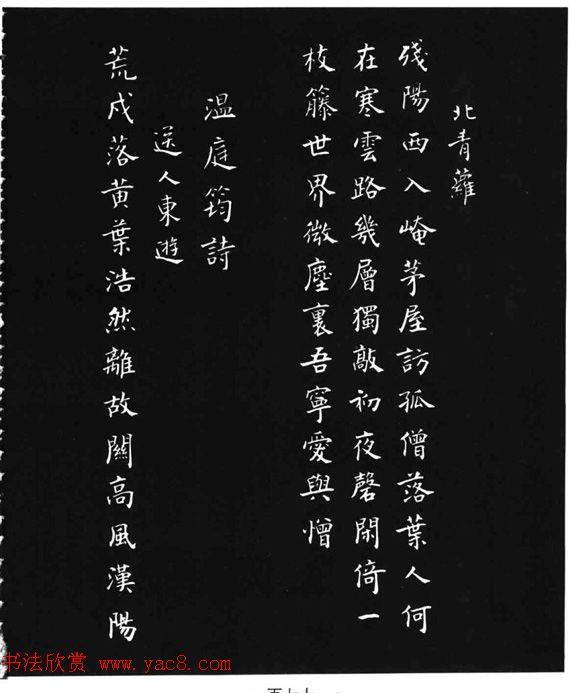 北青蘿
殘陽西入崦茅屋訪孤僧落葉人何
在寒雲路幾層獨敲初夜磬閑倚一
枝籐世界微塵裏吾寧愛與憎
温庭筠詩
送人東遊
荒戍落黃葉浩然離故關高風漢陽
书法欣赏 www.yac8.com